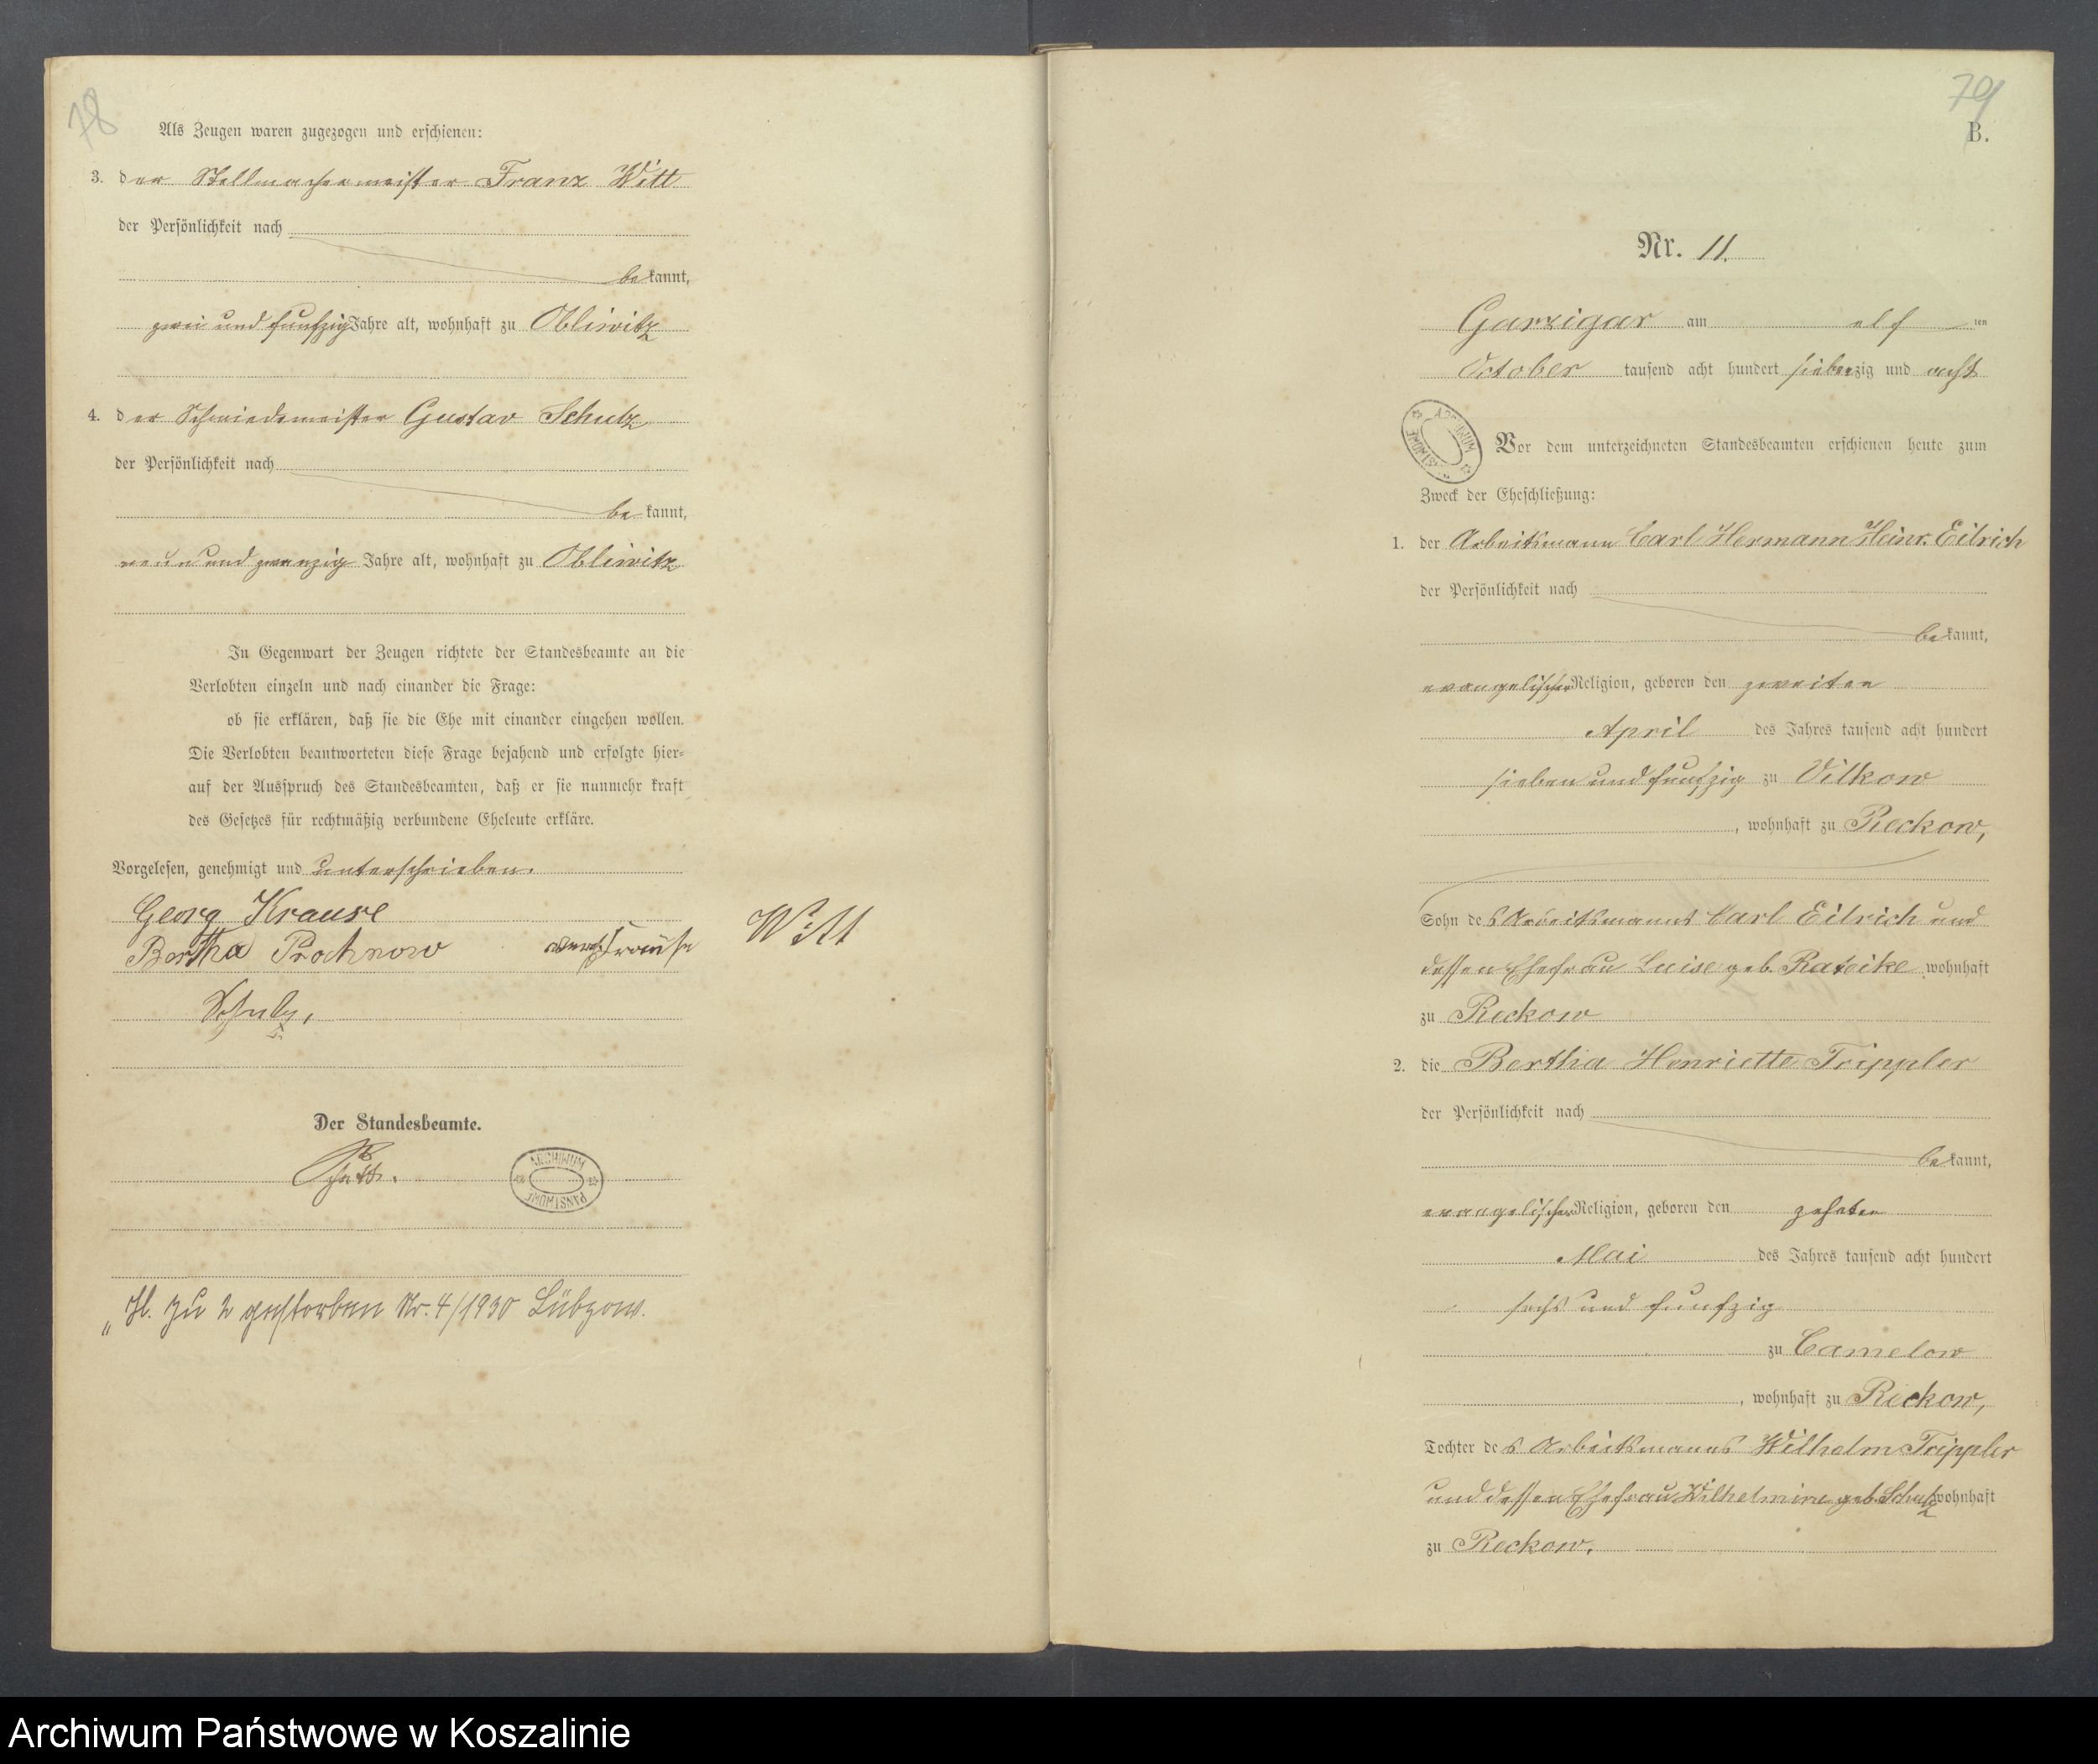 78
Als Zeugen waren zugezogen und erschienen:
3. der Stellmachermeister Franz Witt
der Persönlichkeit nach
bekannt,
zwei und funfzig Jahre alt, wohnhaft zu Obliwitz
4. der Schmiedemeister Gustav Schulz
der Persönlichkeit nach
be kannt,
neun und zwanzig Jahre alt, wohnhaft zu Obliwitz
In Gegenwart der Zeugen richtete der Standesbeamte an die
Verlobten einzeln und nach einander die Frage:
ob sie erklären, daß sie die Ehe mit einander eingehen wollen.
Die Verlobten beantworteten diese Frage bejahend und erfolgte hier-
auf der Ausspruch des Standesbeamten, daß er sie nunmehr kraft
des Gesetzes für rechtmäßig verbundene Eheleute erkläre.
Vorgelesen, genehmigt und unterschrieben.
Georg Krause
Bertha Prochnow
Witt
Schulz,
Der Standesbeamte.
ARCHIWUM PAŃSTWOWE
zu 2 gestorben Nr. 4/1930 Lübzow.
79
B.
Nr. 11.
Garzigar am elf ten
October tausend acht hundert siebenzig und acht
ARCHIWUM PAŃSTWOWE
Vor dem unterzeichneten Standesbeamten erschienen heute zum
Zweck der Eheschließung:
1. der Arbeitsmann Carl Hermann Heinr. Eilrich
der Persönlichkeit nach
bekannt,
evangelischer Religion, geboren den zweiten
April des Jahres tausend acht hundert
sieben und funfzig zu Vilkow
, wohnhaft zu Reckow,
Sohn des Arbeitsmanns Carl Eilrich und
dessen Ehefrau Luise geb. Ratzike wohnhaft
zu Reckow
2. die Bertha Henriette Trippler
der Persönlichkeit nach
bekannt,
evangelischer Religion, geboren den zehnten
Mai des Jahres tausend acht hundert
sechs und funfzig
zu Camelow
, wohnhaft zu Reckow,
Tochter des Arbeitsmanns Wilhelm Trippler
und dessen Ehefrau Wilhelmine geb. Schulz wohnhaft
zu Reckow.
Archiwum Państwowe w Koszalinie